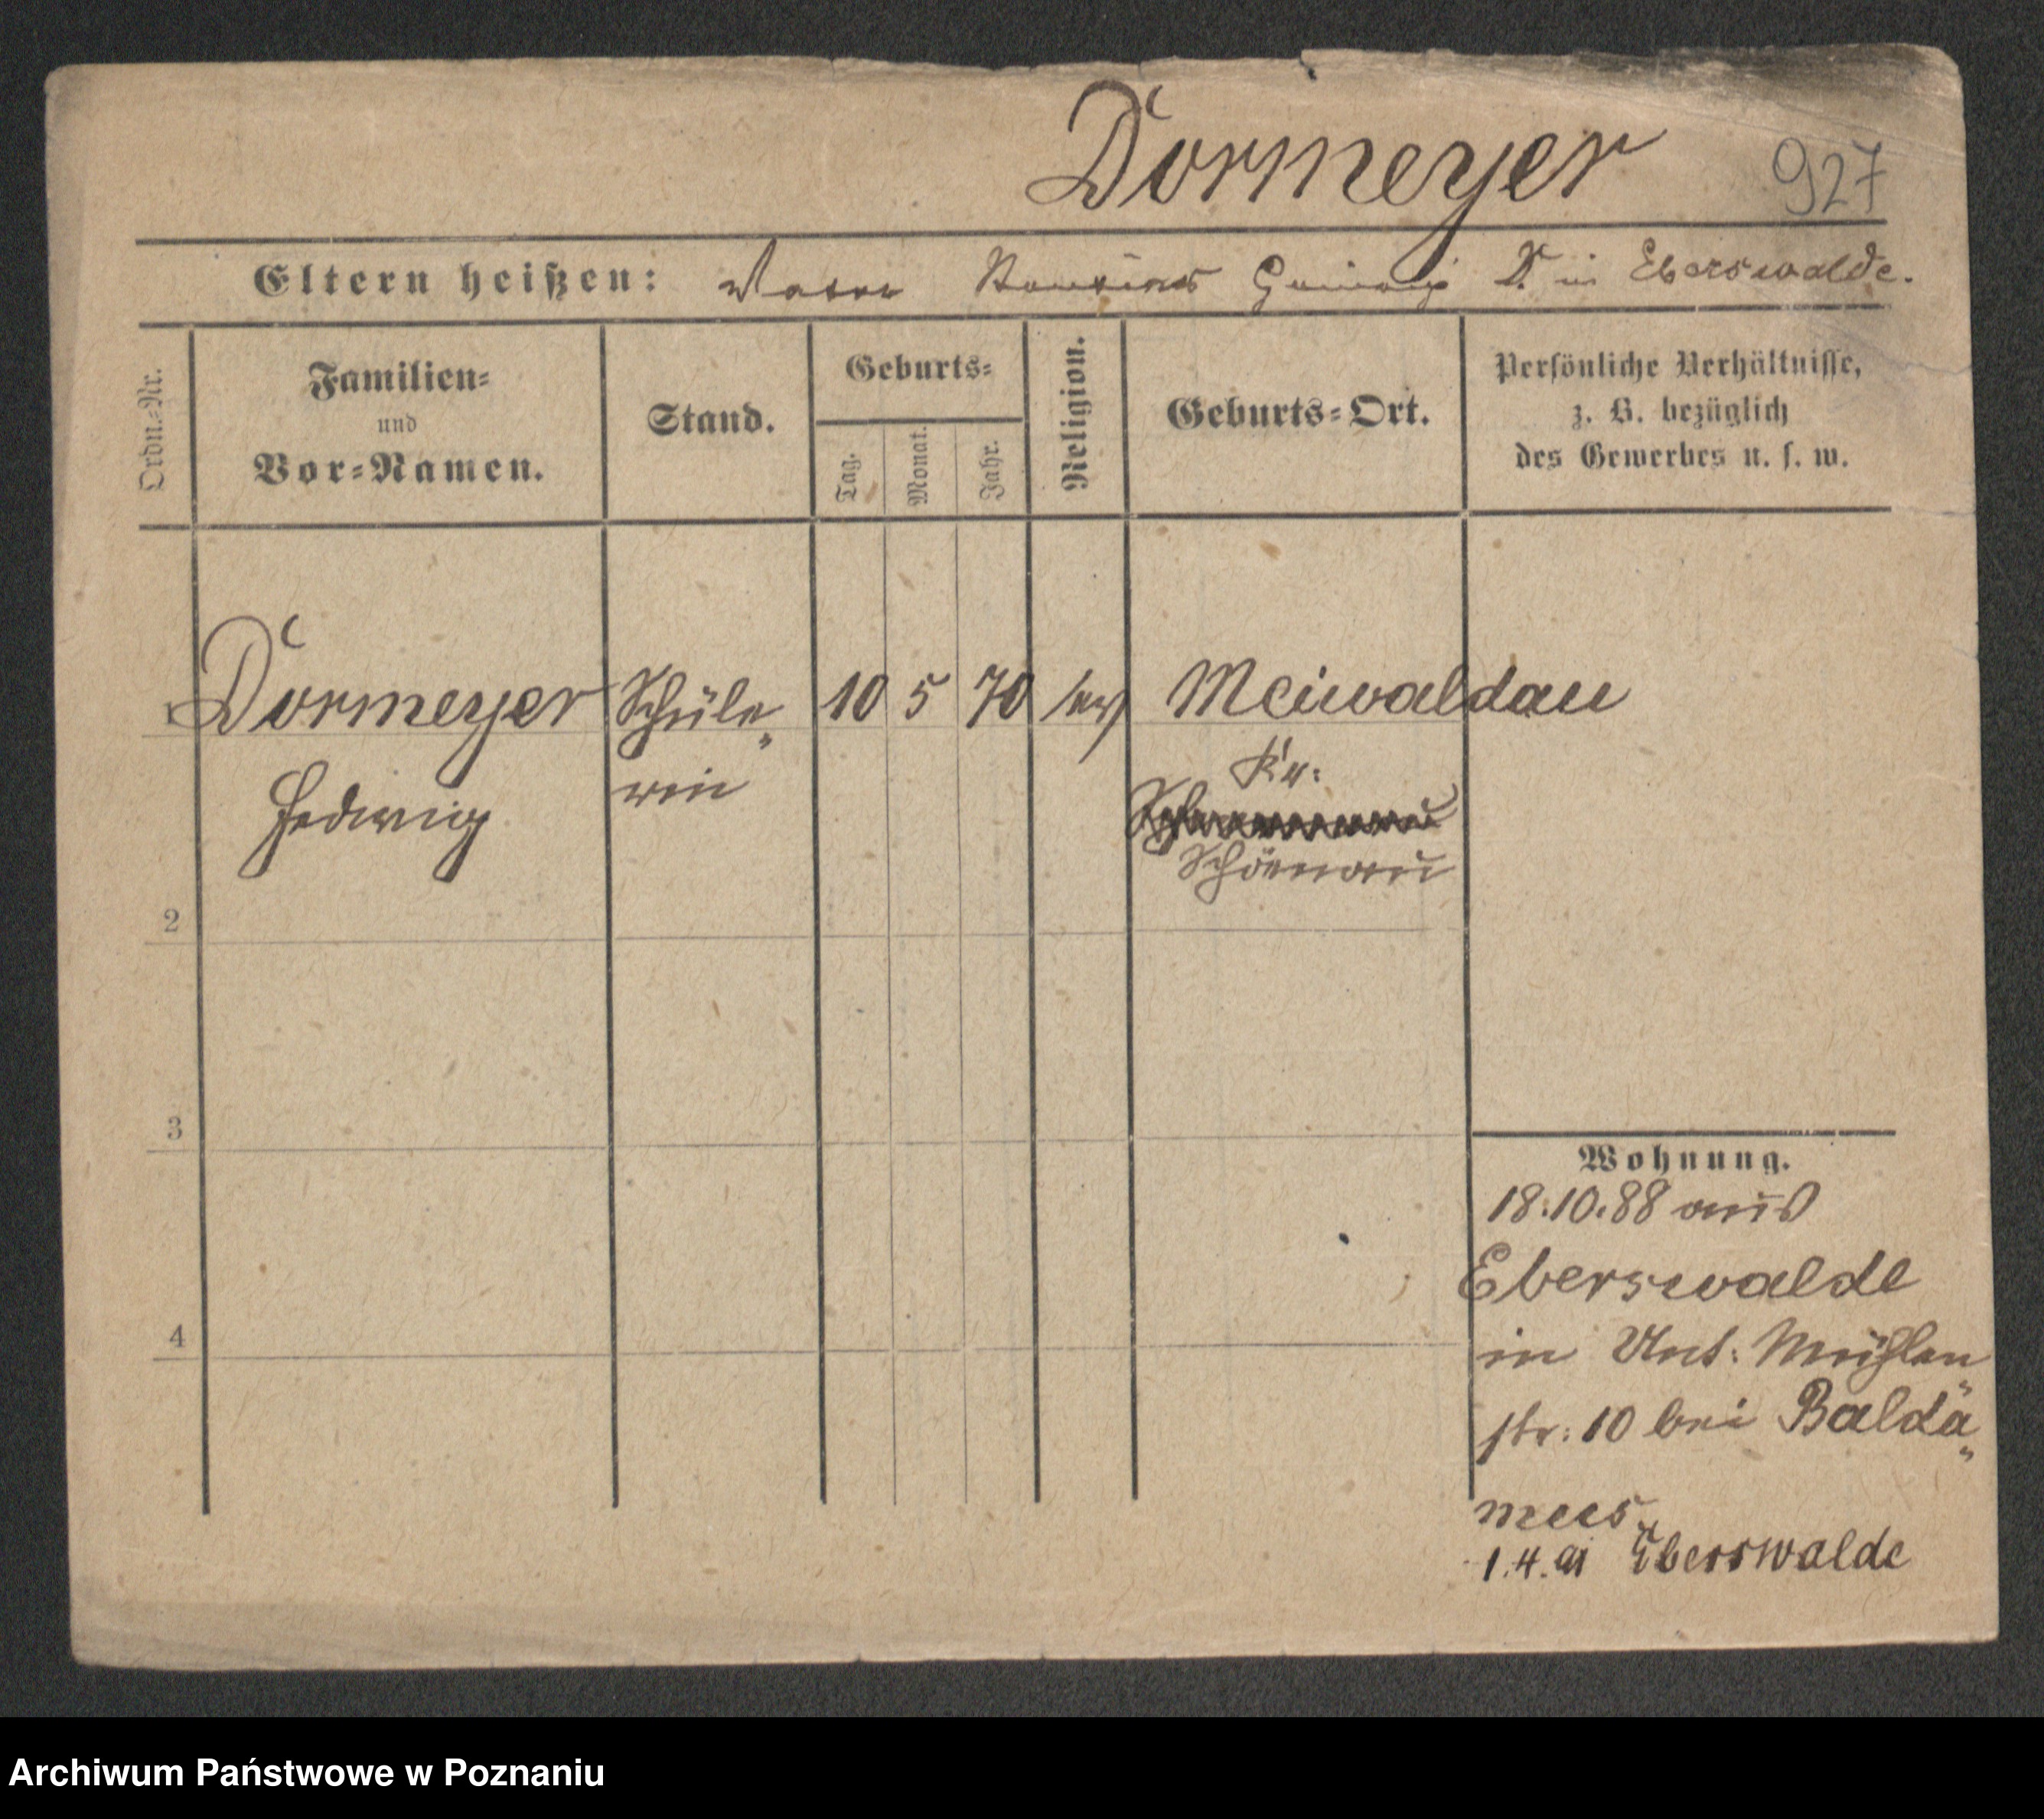 Dormeyer 927
Eltern heißen: Vater Rentier Heinrich D. in Eberswalde.
Ordn.=Nr. Familien= und Vor=Namen. Stand. Geburts= Tag. Monat. Jahr. Religion. Geburts=Ort. Persönliche Verhältnisse,
z. B. bezüglich
des Gewerbes u. s. w.
1 Dormeyer Schüle„ 10 5 70 ev Meiwaldau
Hedwig rin Kr:
Schönau
2
3
Wohnung.
18.10.88 aus
Eberswalde
4
in Unt: Mühlen„
str: 10 bei Baldä„
mees
1.4.91 Eberswalde
Archiwum Państwowe w Poznaniu